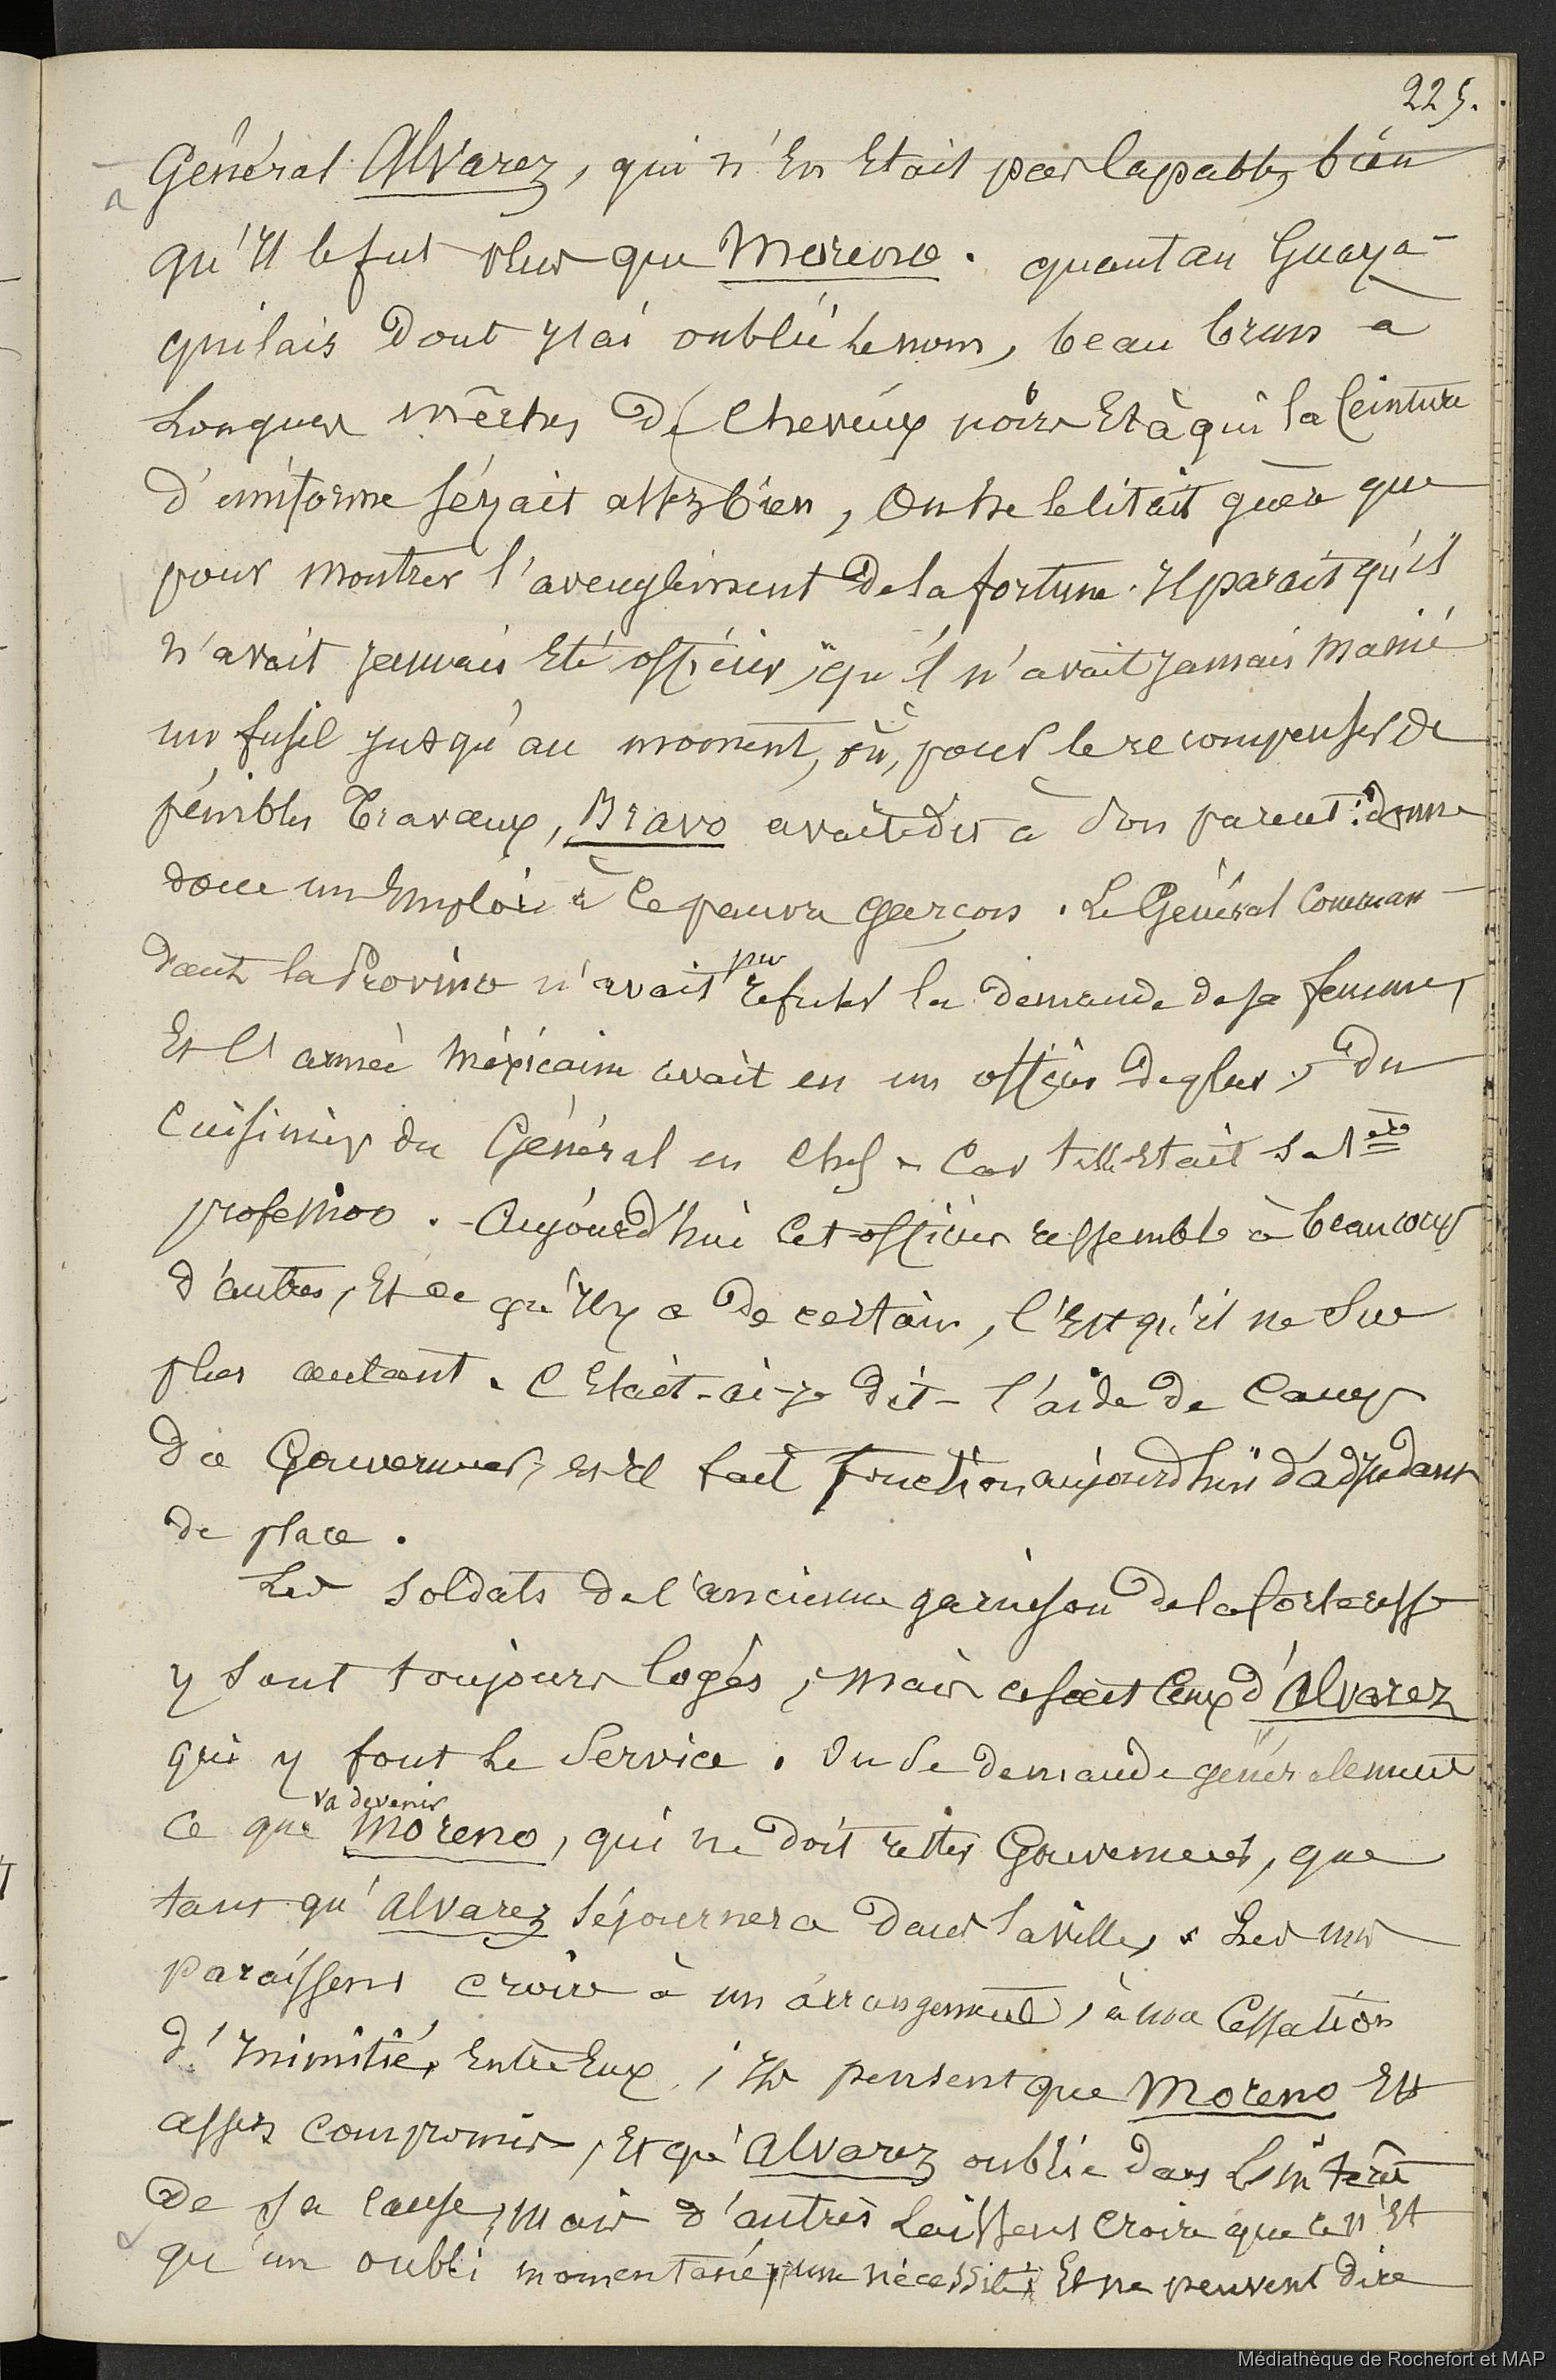 225.
Général Alvarez, qui n'en était pas capable, bien
qu'il le fut plus que Moreno. quant au Guaya-
quilais dont j'ai oublié le nom, beau brun à
longues mèches de cheveux noirs et à qui la ceinture
d'uniforme séyait assez bien, on ne le citait guère que
pour montrer l'aveuglement de la fortune. Il parait qu'il
n'avait jamais été officier, qu'il n'avait jamais manié
un fusil jusqu'au moment, où, pour le recompenser de
pénibles travaux, Bravo avait dit à son parent: donne
donc un emploi à ce pauvre garçon. Le Général comman-
dant la Province n'avait pu refuser la demande de sa femme,
Et l'armée Méxicaine avait eu un officier de plus, du
cuisinier du Général en chef. Car telle était sa 1ère
profession. - Aujourd'hui cet officier ressemble à beaucoup
d'autres, et ce qu'il y a de certain, c'est qu'il ne sue
plus autant. C'était-ai-je dit- l'aide de camp
du Gouverneur, et il fait fonction aujourd'hui d'adjudant
de place.
Les soldats de l'ancienne garnison de la forteresse
y sont toujours logés, mais ce sont ceux d'Alvarez
qui y font le service. On se demande généralement
ce que va devenir Moreno, qui ne doit rester Gouverneur, que
tant qu'Alvarez séjournera dans la ville. Les uns
paraissent croire à un arrangement, à une cessation
d'inimitié, entre eux, ils pensent que Moreno est
assez compromis, et qu'Alvarez oublie dans l'intérêt
de sa cause, mais d'autres laissent croire que ce n'est
qu'un oubli momentané, une nécessité et ne peuvent dire
Médiathèque de Rochefort et MAP